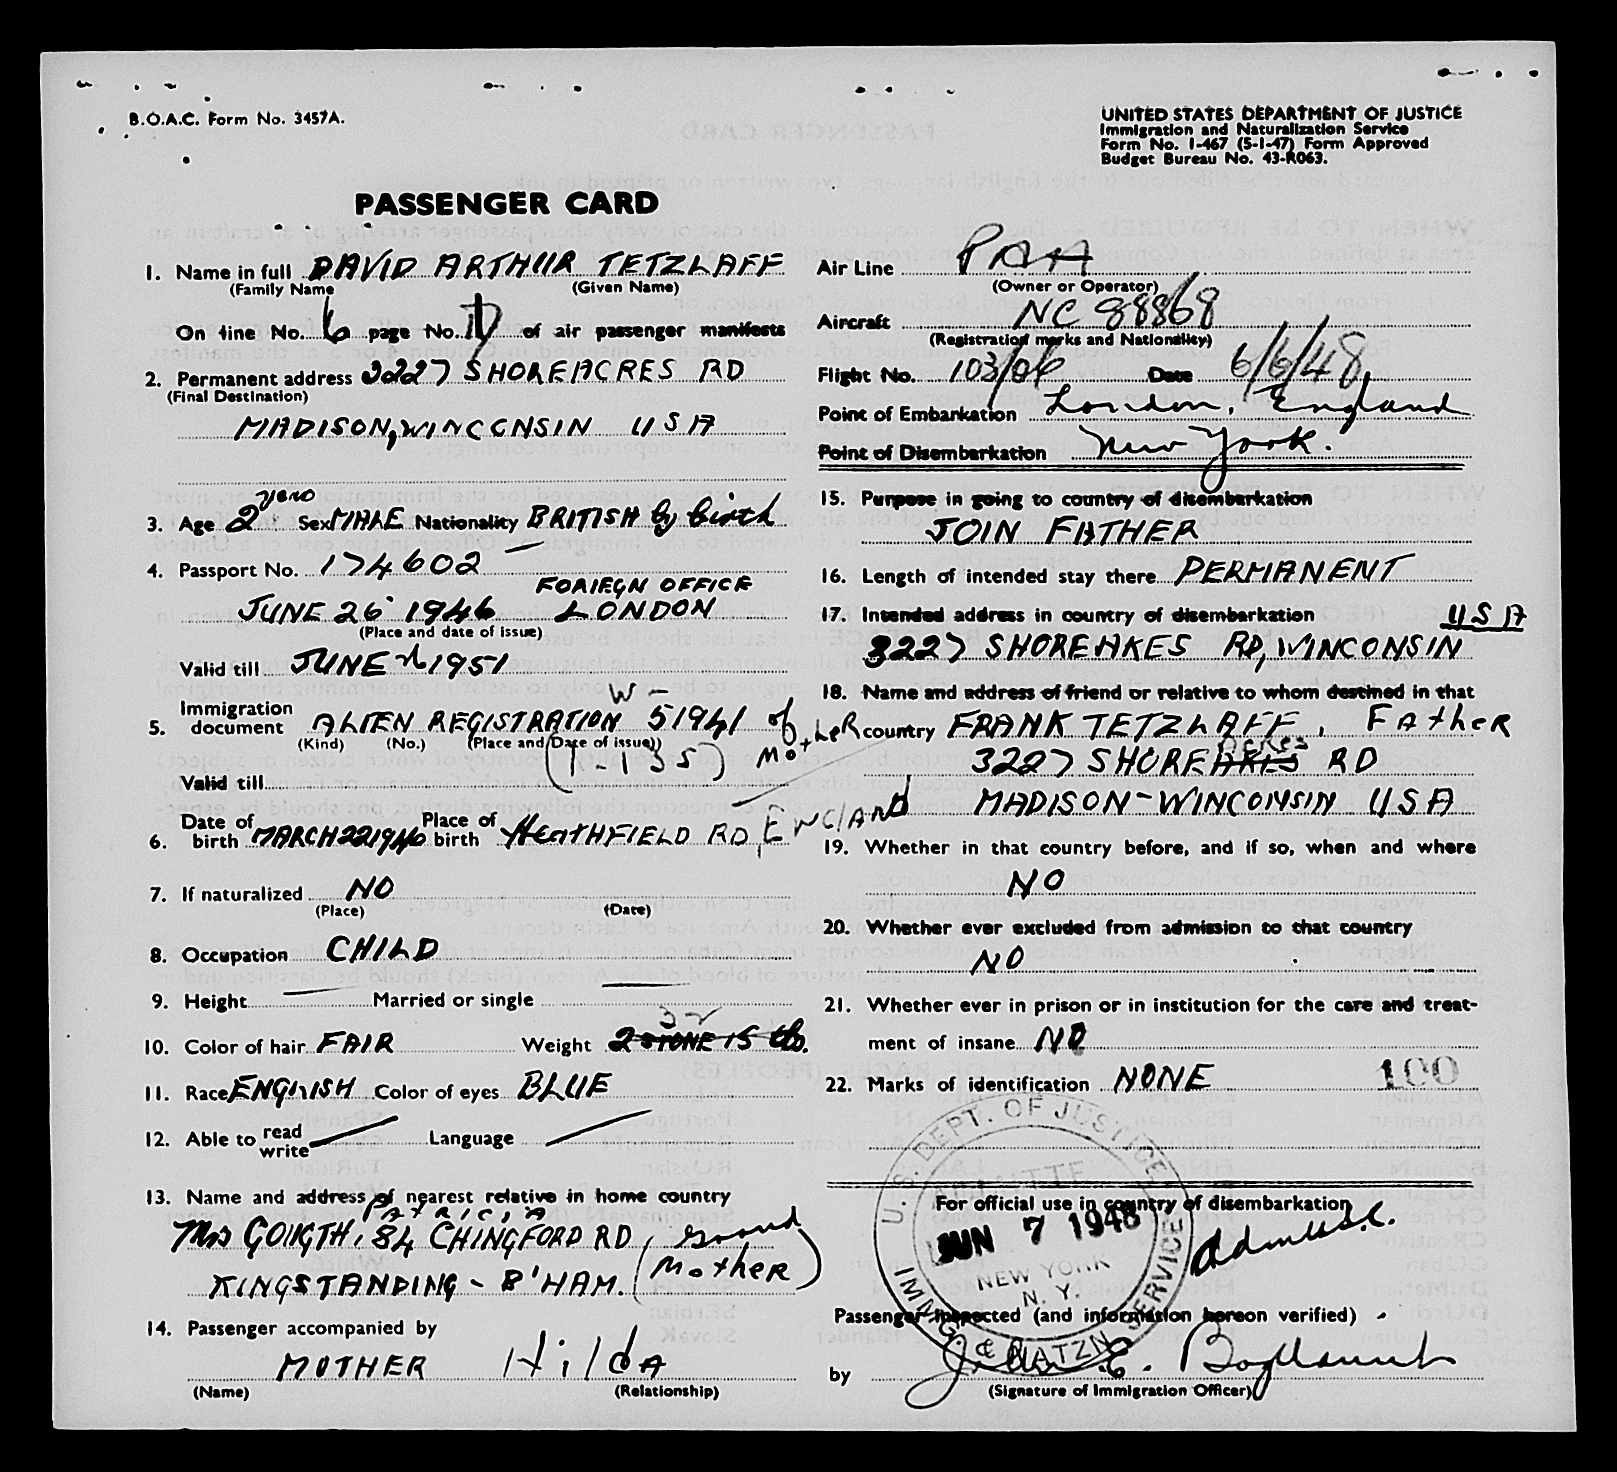 B.O.A.C. Form No. 3457A.
UNITED STATES DEPARTMENT OF JUSTICE
Immigration and Naturalization Service
Form No. I-467 (5-1-47) Form Approved
Budget Bureau No. 43-R063.
PASSENGER CARD
1. Name in full DAVID ARTHUR TETZLAFF
(Family Name (Given Name)
On line No. 6 page No. D of air passenger manifests
2. Permanent address 3227 SHOREACRES RD
(Final Destination)
MADISON, WINCONSIN USA
3. Age 2 years Sex MALE Nationality BRITISH by birth
4. Passport No. 174602
FORIEGN OFFICE
JUNE 26 1946 LONDON
(Place and date of issue)
Valid till JUNE 1951
5. Immigration document ALIEN REGISTRATION W- 51941 of Mother
(Kind) (No.) (Place and Date of issue)
(1-135)
Valid till
6. Date of birth MARCH 22 1946 Place of birth HEATHFIELD RD, ENGLAND
7. If naturalized NO
(Place) (Date)
8. Occupation CHILD
9. Height — Married or single —
32
10. Color of hair FAIR Weight 2 STONE 15 lbs.
11. Race ENGLISH Color of eyes BLUE
12. Able to read write Language
13. Name and address of nearest relative in home country
PATRICIA
Mrs GOUGTH, 84 CHINGFORD RD, Grand
KINGSTANDING - B'HAM. (Mother)
14. Passenger accompanied by
MOTHER Hilda
(Name) (Relationship)
Air Line PAA
(Owner or Operator)
Aircraft NC 88868
(Registration marks and Nationality)
Flight No. 103/06 Date 6/6/48
Point of Embarkation London, England
Point of Disembarkation New York.
15. Purpose in going to country of disembarkation
JOIN FATHER
16. Length of intended stay there PERMANENT
17. Intended address in country of disembarkation USA
3227 SHOREAKES RD, WINCONSIN
18. Name and address of friend or relative to whom destined in that
country FRANK TETZLAFF, Father
3227 SHOREAKES acres RD
MADISON - WINCONSIN USA
19. Whether in that country before, and if so, when and where
NO
20. Whether ever excluded from admission to that country
NO
21. Whether ever in prison or in institution for the care and treat-
ment of insane NO
22. Marks of identification NONE 100
U. S. DEPT. OF JUSTICE
ADMITTED
For official use in country of disembarkation
JUN 7 1948
NEW YORK
N. Y.
IMMIG. & NATZN. SERVICE
Passenger inspected (and information hereon verified)
by
(Signature of Immigration Officer)